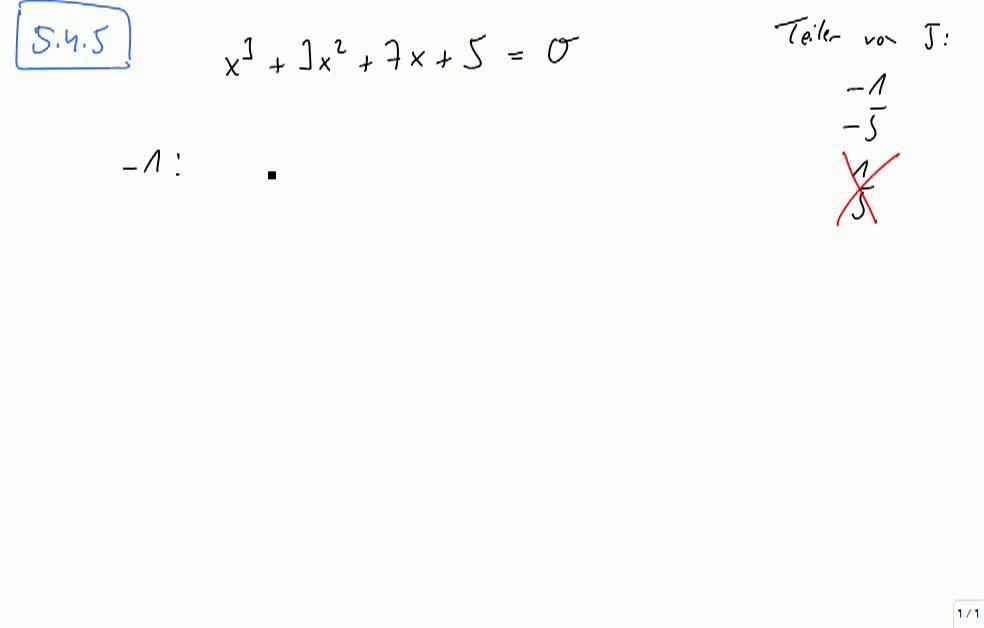 5.4.5
x³ + 3x² + 7x + 5 = 0
Teiler von 5:
-1
-5
1
5
-1:
1 / 1